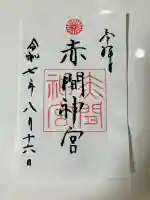 奉拝
赤間神宮
赤間神宮
令和七年八月十六日